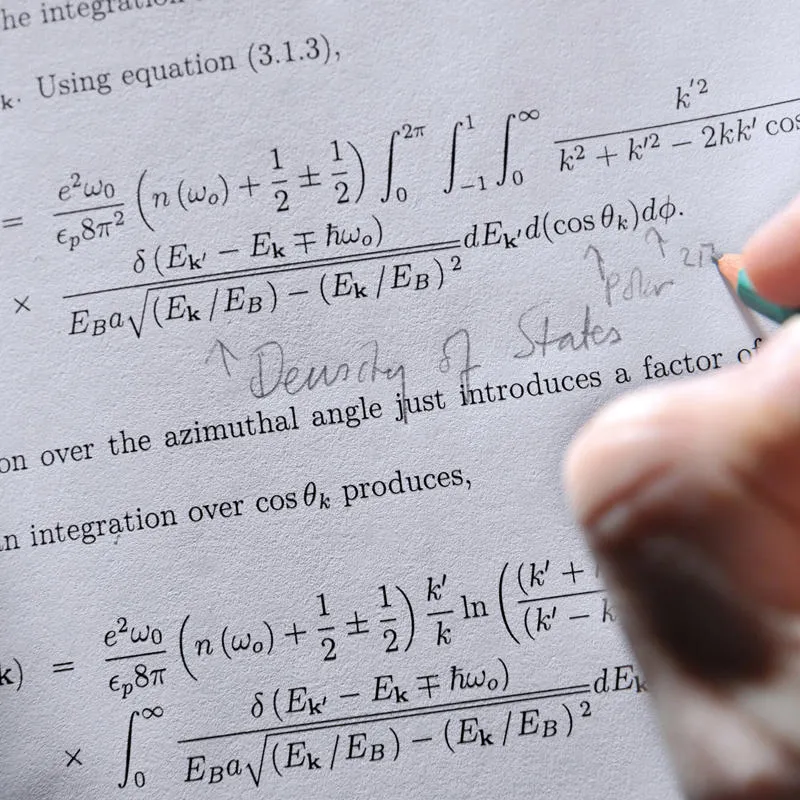 he integration
k. Using equation (3.1.3),
= e²ω₀/ϵₚ8π² (n (ωₒ) + 1/2 ± 1/2) ∫₀^{2π} ∫₋₁^{1} ∫₀^{∞} k′²/(k² + k′² − 2kk′ cos
× δ (E_{k′} − E_k ∓ ħωₒ)/(E_B a√((E_k/E_B) − (E_k/E_B)²)) dE_{k′}d(cos θₖ)dϕ.
↑ ↑ 2π
polar
↑ Density of States
on over the azimuthal angle just introduces a factor of
n integration over cos θₖ produces,
k) = e²ω₀/ϵₚ8π (n (ωₒ) + 1/2 ± 1/2) k′/k ln ((k′ +/(k′ − k
× ∫₀^{∞} δ (E_{k′} − E_k ∓ ħωₒ)/(E_B a√((E_k/E_B) − (E_k/E_B)²)) dE_k